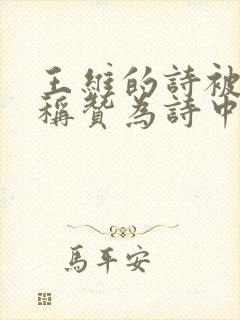 王維的詩被
稱贊為詩中
馬平安